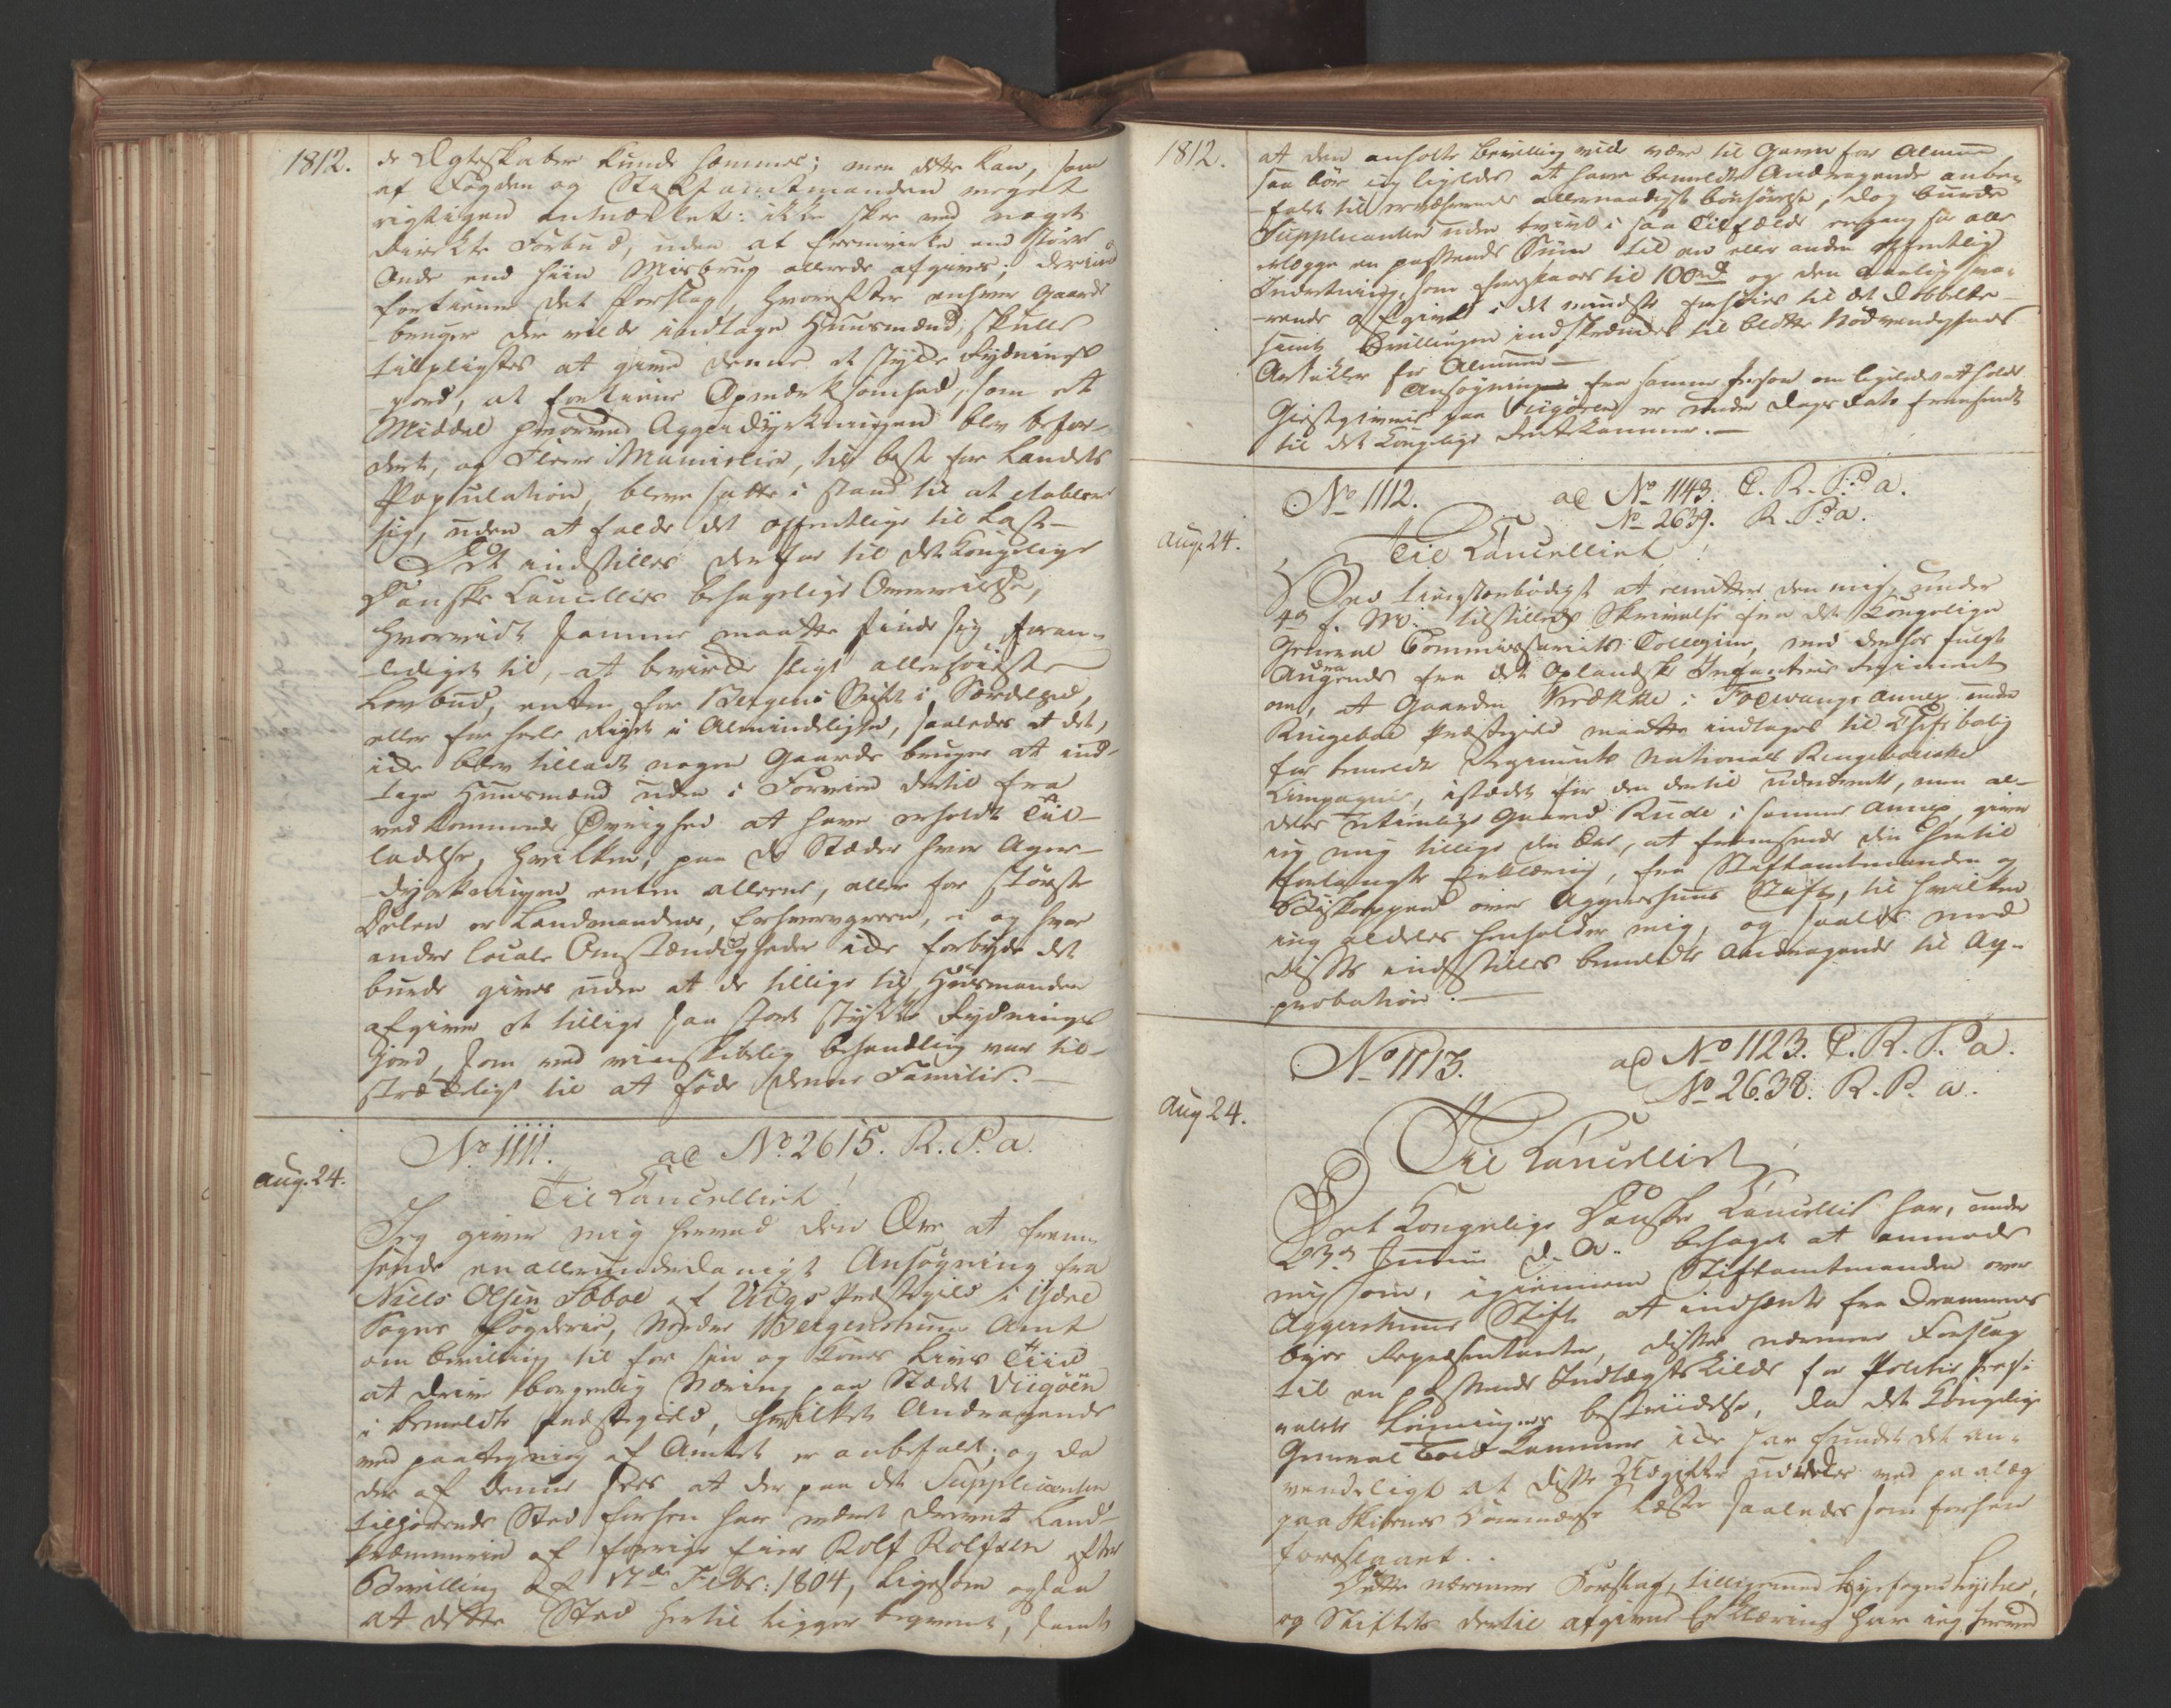 1812.
de Ægteskaber kunde hæmmes; men dette kan, som
af Fogden og Stiftamtmanden meget
rigtigen anmærket: ikke skee ved noget
directe Forbud, uden at fremvirke end større
Onde end hiin Misbrug allerede afgiver; derimod
fortiener det Forslag, hvorefter enhver Gaard-
bruger der vilde indtage Huusmænd, skulle
tilpligtes at give denne et stykke Rydnings
jord, at fortiene Opmærksomhed, som et
Middel hvorved Agger Dyrkningen blev befor-
dret, og Fleere Mennisker, til best for Landets
Population, bleve satte i stand til at etablere
sig, uden at falde det offentlige til Last.
Det indstilles derfor til det Kongelige
Danske Cancellies behagelige Overveielse,
hvorvidt samme maatte finde sig foran-
lediget til, at bevirke sligt allerhøieste
Lovbud, enten for Bergens Stift i Særdeleshed,
eller for hele Riget i Almindelighed, saaledes at det,
ikke blev tilladt nogen Gaardbruger at ind-
tage Huusmænd uden i Forveien dertil fra
vedkommende Øvrighed at have erholdt Til-
ladelse, hvilken, paa de Stæder hvor Ager-
dyrkningen enten allene, eller for største
Delen er Landmandens Erhvervgreen, og hvor
andre locale Omstændigheder ikke forbyde det
burde gives uden at de tillige til Huusmanden
afgiver et tillige saa stort stykke Rydnings
Jord, som ved vindskibelig behandling var til-
strækkeligt til at føde denne Familie.
Aug. 24.
No 1111. ad No 2615. R. P. a.
Til Cancelliet!
Jeg giver mig herved den Ære at frem-
sende en allerunderdanigst Ansøgning fra
Niels Olsen Søboe af Viigs Præstegield i Ydre
Sogns Fogderie, Nordre Bergenhuus Amt
om bevilling til for sin og Kones Livs Tiid
at drive borgerlig Næring paa Stædet Viigøen
i bemeldte Præstegield, hvilket Andragende
ved paategning af Amtet er anbefalt; og da
der af denne sees at der paa det Supplicanten
tilhørende Sted forhen har været drevet Land-
kræmmerie af forrige Eier Rolf Rolfsen efter
Bevilling af 17de Febr: 1804, ligesom ogsaa
at dette Sted hertil ligger beqvemt, samt
1812.
at den ansøgte bevilling vilde være til Gavn for Almuen,
saa bør jeg ligeledes at have bemeldte Andragende anbe-
falet til nærværende allernaadigst bønhørelse; dog burde
Supplicanten uden tvivl i saa Tilfælde engang for alle
erlægge en passende Sum til en eller anden offentlig
Indretning, som foreslaaes til 100 rd og den aarlig sva-
rende Afgivt i det mindste forhøies til det Dobbelte
samt Bevillingen indskrænkes til blotte Nødvendigheds
Artikler for Almuen.
Ansøgning fra samme Person om ligeledes at holde
Giestgiverie paa Viigøen er under Dags Dato fremsendt
til det Kongelige Rentekammer.
No 1112. ad No 1143. C. R. P. a.
No 2639. R. P. a.
Aug. 24.
Til Cancelliet!
Ved tienstærbødigst at remittere den mig under
4de f. M. tilstillede Skrivelse fra det Kongelige
General Commissariats Collegium, med derhos fulgte
Andragende fra det Oplandske Infanterie Regiment
om, at Gaarden Krække i Fodvangs Annex under
Ringeboe Præstegield maatte indtages til Chefs bolig
for bemeldte Regiments Nationale Ringeboeiske
Compagnie, istædet for den dertil udnævnte, men al-
deles utienlige Gaard Rude i samme Annex, giver
jeg mig tillige den Ære, at fremsende den hertil
forlangte Erklæring, fra Stiftamtmanden og
Biskoppen over Aggershuus Stift, til hvilken
jeg aldeles henholder mig, og saaledes med
disse indstilles bemeldte Andragende til Ap-
probation.
No 1113. ad No 1123. C. R. P. a.
No 2638. R. P. a.
Aug 24.
Til Cancelliet!
Det Kongelige Danske Cancellie har, under
23de Junii d. A. behaget at anmode
mig om, igiennem Stiftamtmanden over
Aggershuus Stift at indhente fra Drammens
byes Repræsentanter, disses nærmere Forslag
til en passende Indtægtskilde for Politie Perso-
nalets Lønningers bestridelse, da det Kongelige
General Toldkammer ikke har fundet det an-
vendeligt at disse Udgifter udredes ved paalæg
paa Skibenes Commerce Læster saaledes som forhen
foreslaaet.
Dette nærmere Forslag, tilligemed Byefogdens,
og Stiftets dertil afgivne Erklæring har jeg herved